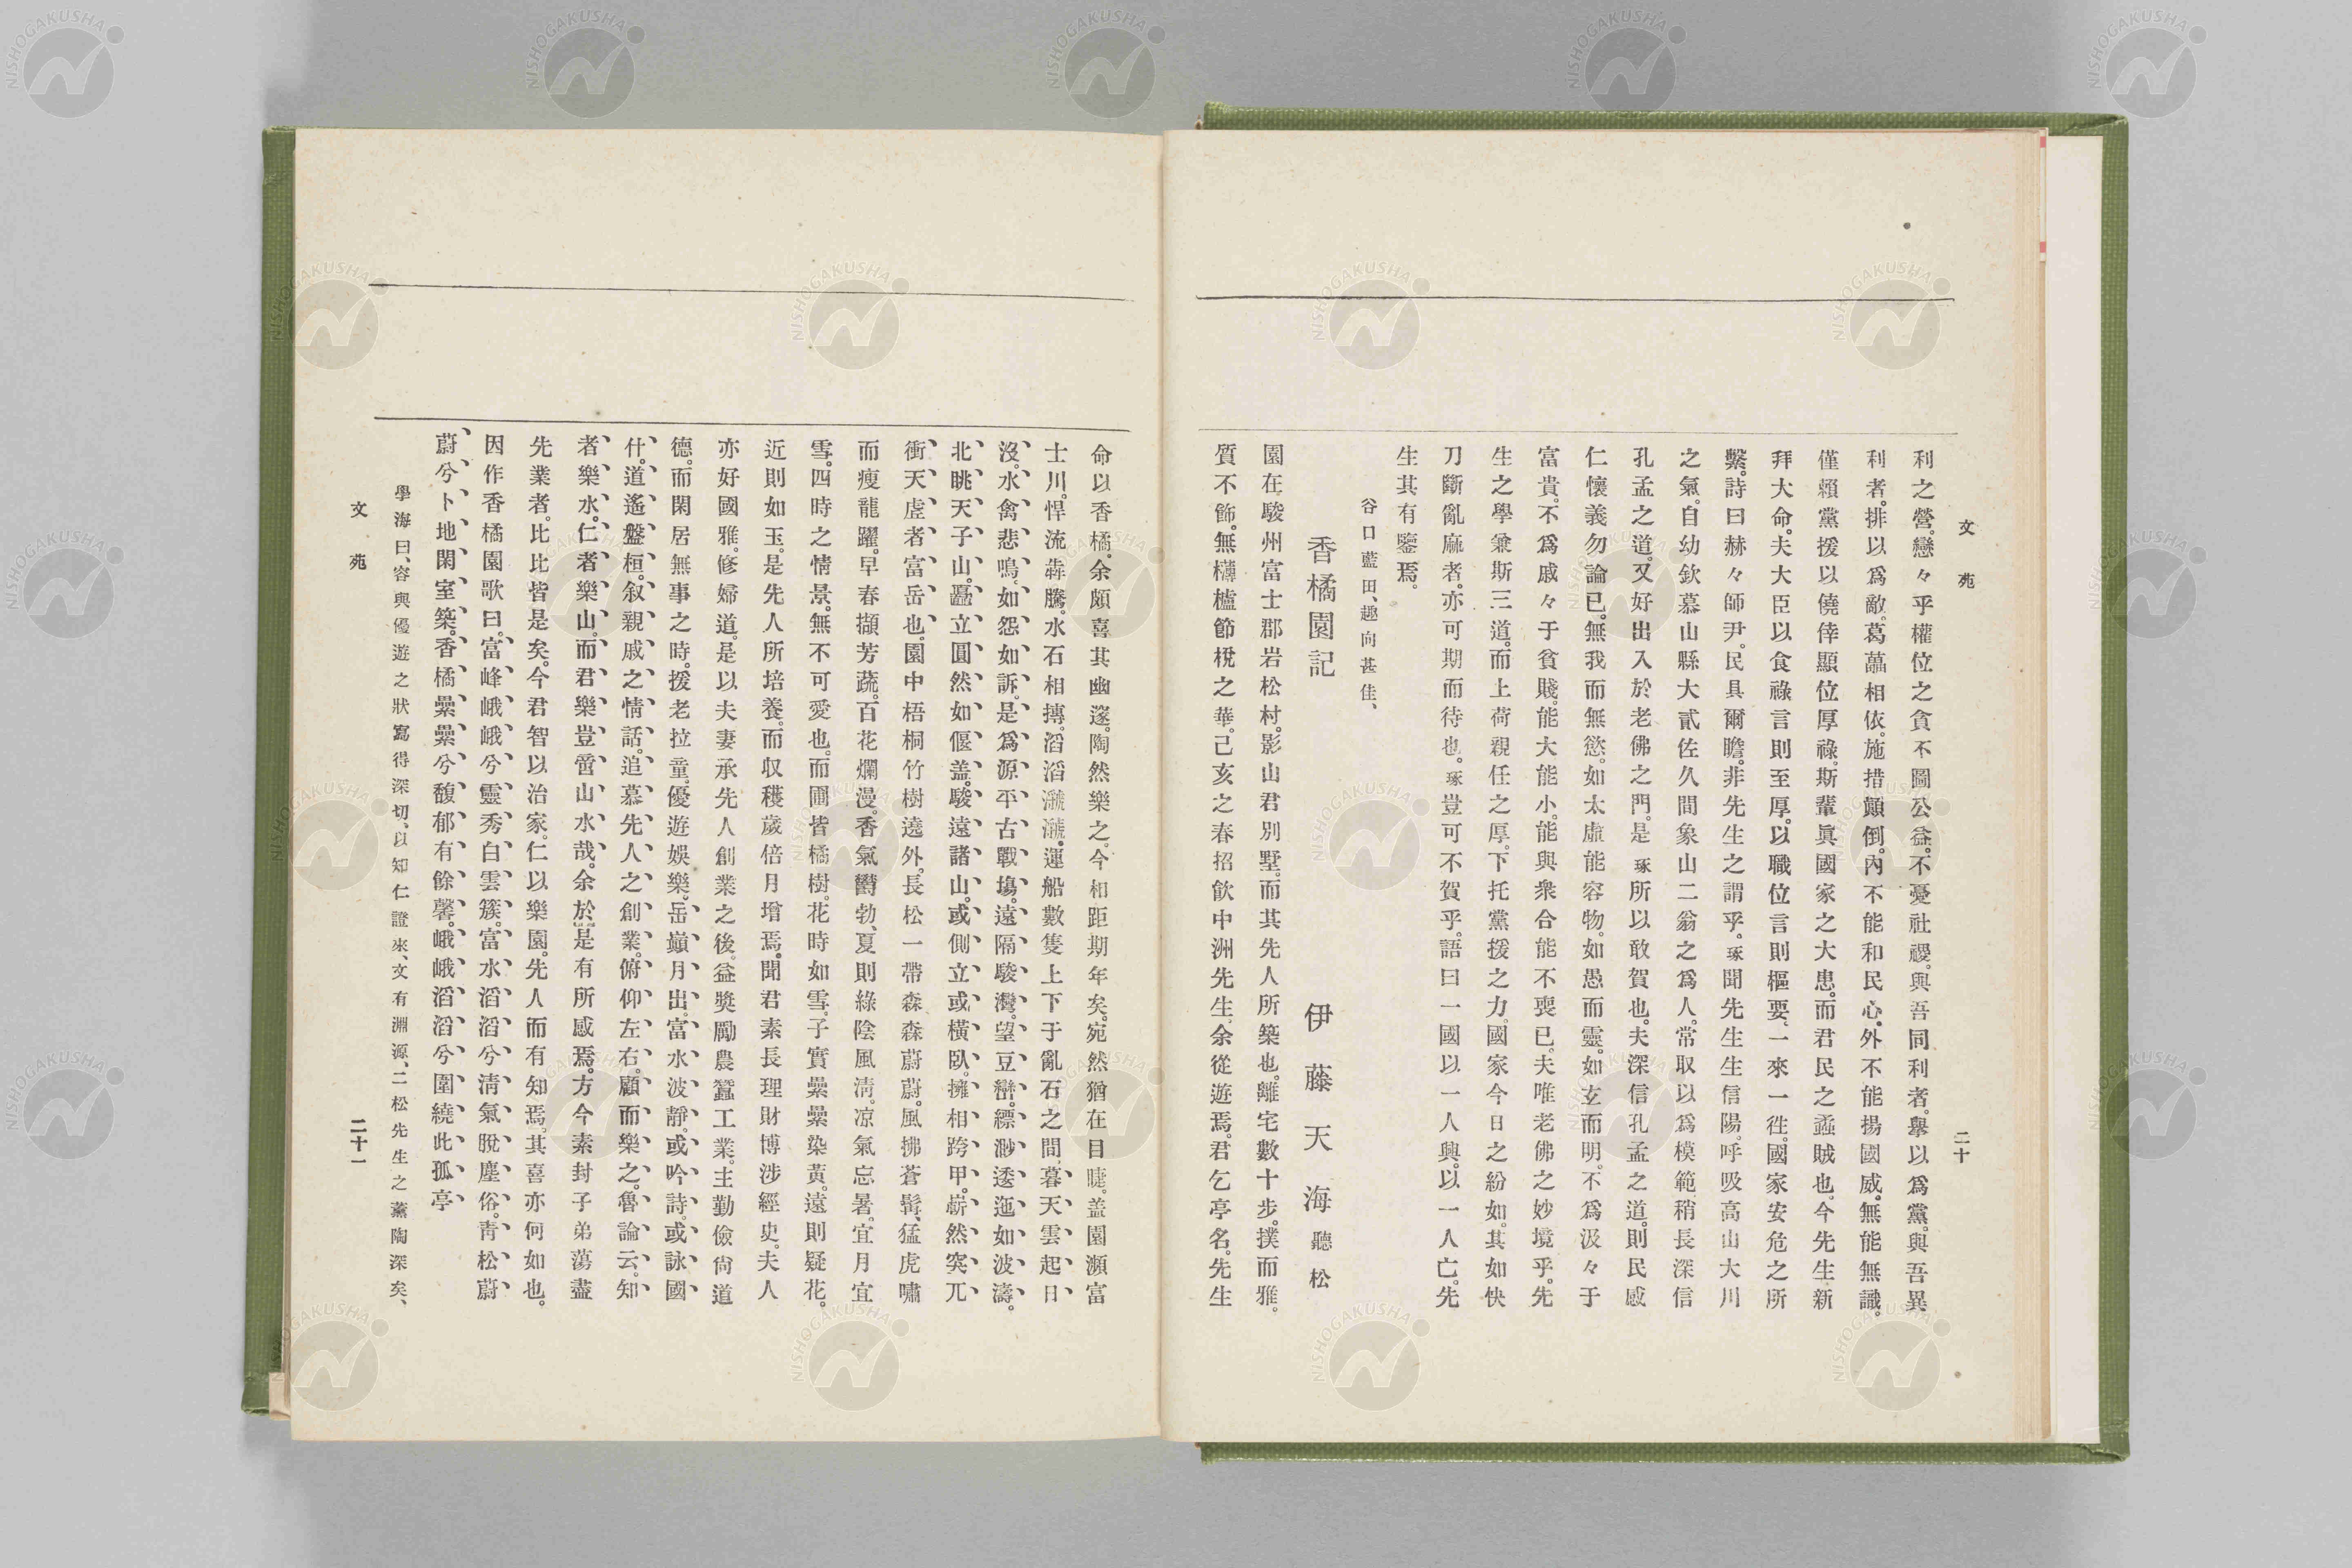 文苑
二十
利之營。戀々乎權位之貪不圖公益。不憂社稷。與吾同利者。擧以爲黨。與吾異
利者。排以爲敵。葛藟相依。施措顚倒。內不能和民心。外不能揚國威。無能無識。
僅賴黨援以僥倖顯位厚祿。斯輩眞國家之大患。而君民之蟊賊也。今先生新
拜大命。夫大臣以食祿言則至厚。以職位言則樞要、一來一徃。國家安危之所
繫。詩曰赫々師尹。民具爾瞻。非先生之謂乎。琢聞先生生信陽。呼吸高山大川
之氣。自幼欽慕山縣大貳佐久間象山二翁之爲人。常取以爲模範稍長深信
孔孟之道。又好出入於老佛之門。是琢所以敢賀也。夫深信孔孟之道。則民感
仁懷義勿論已。無我而無慾。如太虛能容物。如愚而靈。如玄而明。不爲汲々于
富貴。不爲戚々于貧賤。能大能小。能與衆合能不喪已。夫唯老佛之妙境乎。先
生之學兼斯三道。而上荷親任之厚。下托黨援之力。國家今日之紛如。其如快
刀斷亂麻者。亦可期而待也。琢豈可不賀乎。語曰一國以一人興。以一人亡。先
生其有鑒焉。
谷口藍田、趣向甚佳、
香橘園記
伊藤天海 聽松
園在駿州富士郡岩松村。影山君別墅。而其先人所築也。離宅數十步。撲而雅。
質不飾。無欂櫨節梲之華。己亥之春招飮中洲先生。余從遊焉。君乞亭名。先生
命以香橘。余頗喜其幽邃。陶然樂之。今相距期年矣。宛然猶在目睫。盖園瀕富
士川。悍流犇騰。水石相搏。滔滔瀧瀧。運船數隻上下于亂石之間。暮天雲起日
沒。水禽悲鳴。如怨如訴。是爲源平古戰塲。遠隔駿灣。望豆巒。縹渺逶迤如波濤。
北眺天子山。矗立圓然如偃盖。駿遠諸山。或側立或橫臥。擁相跨甲。嶄然突兀
衝天虛者富岳也。園中梧桐竹樹遶外。長松一帶森森蔚蔚。風拂蒼髯、猛虎嘯
而瘦龍躍。早春擷芳蔬。百花爛漫。香氣欝勃、夏則綠陰風淸。凉氣忘暑。宜月宜
雪。四時之情景。無不可愛也。而圃皆橘樹。花時如雪。子實纍纍染黃。遠則疑花。
近則如玉。是先人所培養。而収穫歲倍月增焉。聞君素長理財博涉經史。夫人
亦好國雅。修婦道。是以夫妻承先人創業之後。益獎勵農蠶工業。主勤儉尙道
德。而閑居無事之時。援老拉童。優遊娛樂。岳巓月出。富水波靜。或吟詩。或詠國
什。道遙盤桓。叙親戚之情話。追慕先人之創業。俯仰左右。顧而樂之。魯論云。知
者樂水。仁者樂山。而君樂豈啻山水哉。余於是有所感焉。方今素封子弟蕩盡
先業者。比比皆是矣。今君智以治家。仁以樂園。先人而有知焉。其喜亦何如也。
因作香橘園歌曰。富峰峨峨兮靈秀白雲簇。富水滔滔兮淸氣脫塵俗。靑松蔚
蔚兮卜地閑室築。香橘纍纍兮馥郁有餘馨。峨峨滔滔兮圍繞此孤亭
學海曰、容與優遊之狀寫得深切、以知仁證來、文有淵源、二松先生之薰陶深矣、
文苑
二十一